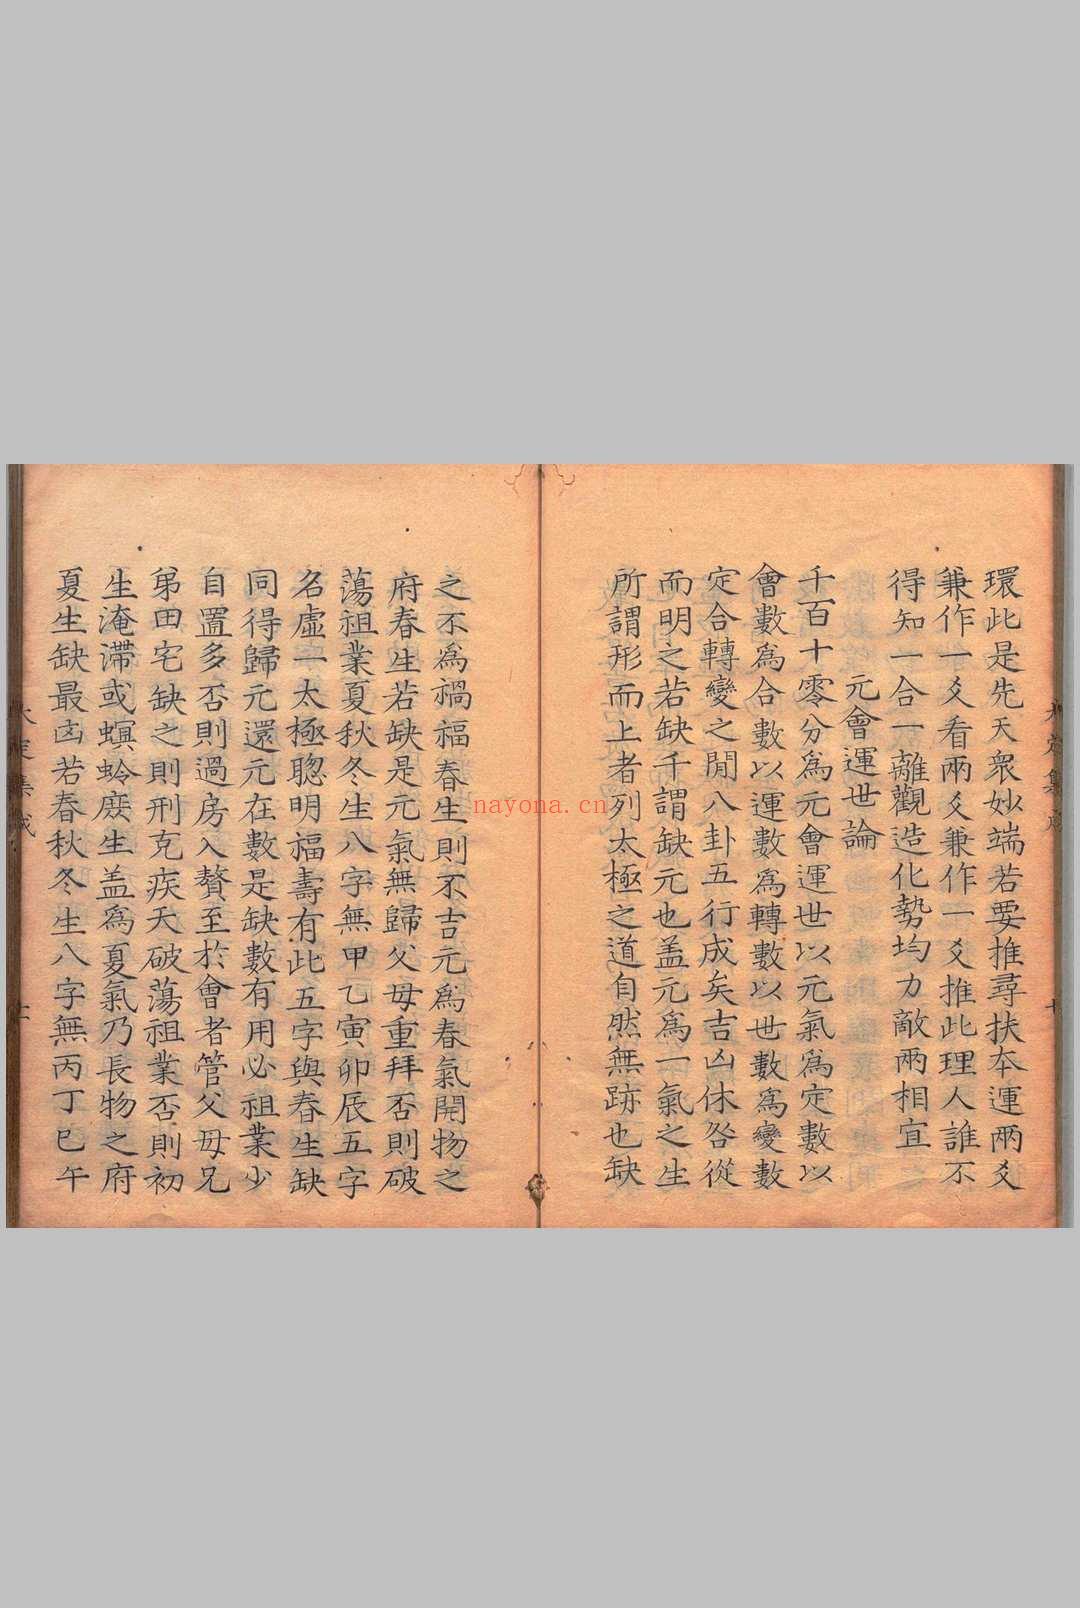 環此是先天衆妙端若要推尋扶本運兩爻
兼作一爻看兩爻兼作一爻推此理人誰不
得知一合一離觀造化勢均力敵兩相宜
元會運世論
千百十零分爲元會運世以元氣爲定數以
會數爲合數以運數爲轉數以世數爲變數
定合轉變之閒八卦五行成矣吉凶休咎從
而明之若缺千謂缺元也盖元爲一氣之生
所謂形而上者列太極之道自然無跡也缺
之不爲禍福春生則不吉元爲春氣開物之
府春生若缺是元氣無歸父母重拜否則破
蕩祖業夏秋冬生八字無甲乙寅卯辰五字
名虛一太極聰明福壽有此五字與春生缺
同得歸元還元在數是缺數有用必祖業少
自置多否則過房入贅至於會者管父母兄
弟田宅缺之則刑克疾夭破蕩祖業否則初
生淹滯或螟蛉庶生盖爲夏氣乃長物之府
夏生缺最凶若春秋冬生八字無丙丁巳午
nayona.cn